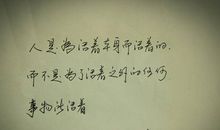 人是为活着本身而活着的，
而不是为了活着之外的任何
事物所活着